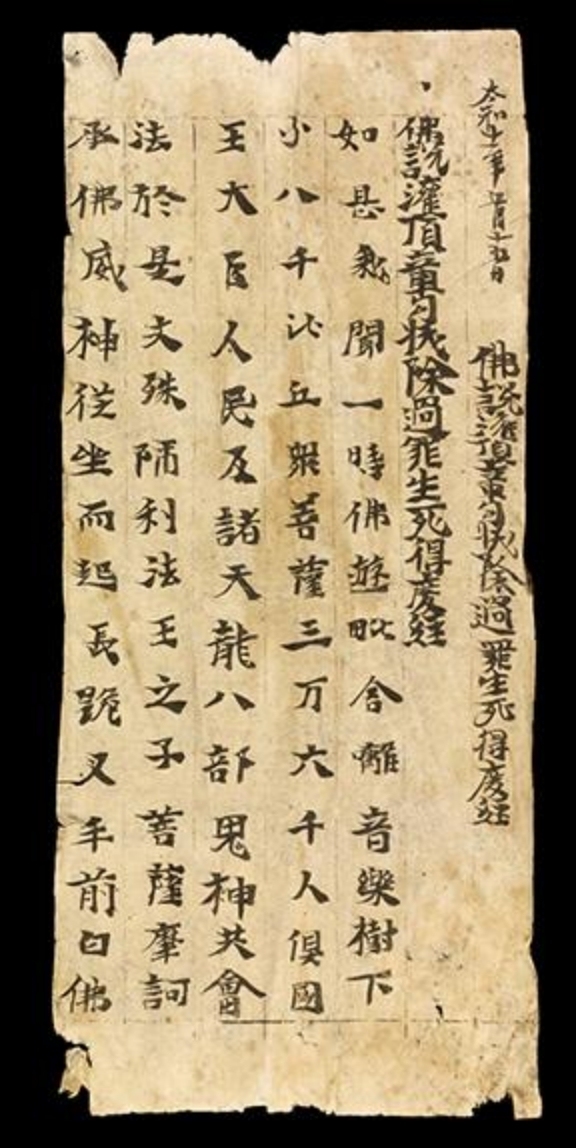 太和十一年五月十五日 佛說灌頂章句拔除過罪生死得度經
佛說灌頂章句拔除過罪生死得度經
如是我聞一時佛遊毗舍離音樂樹下
八千比丘眾菩薩三万六千人俱國
王大臣人民及諸天龍八部鬼神共會
法於是文殊師利法王之子菩薩摩訶
承佛威神從坐而起長跪叉手前白佛